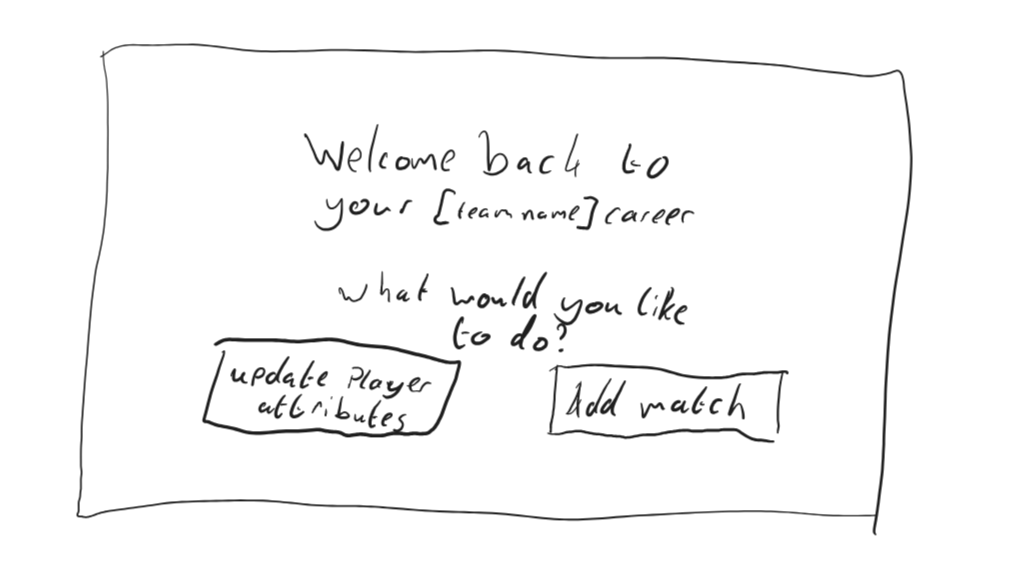 Welcome back to
your [team name] career
what would you like
to do?
update Player
attributes
Add match